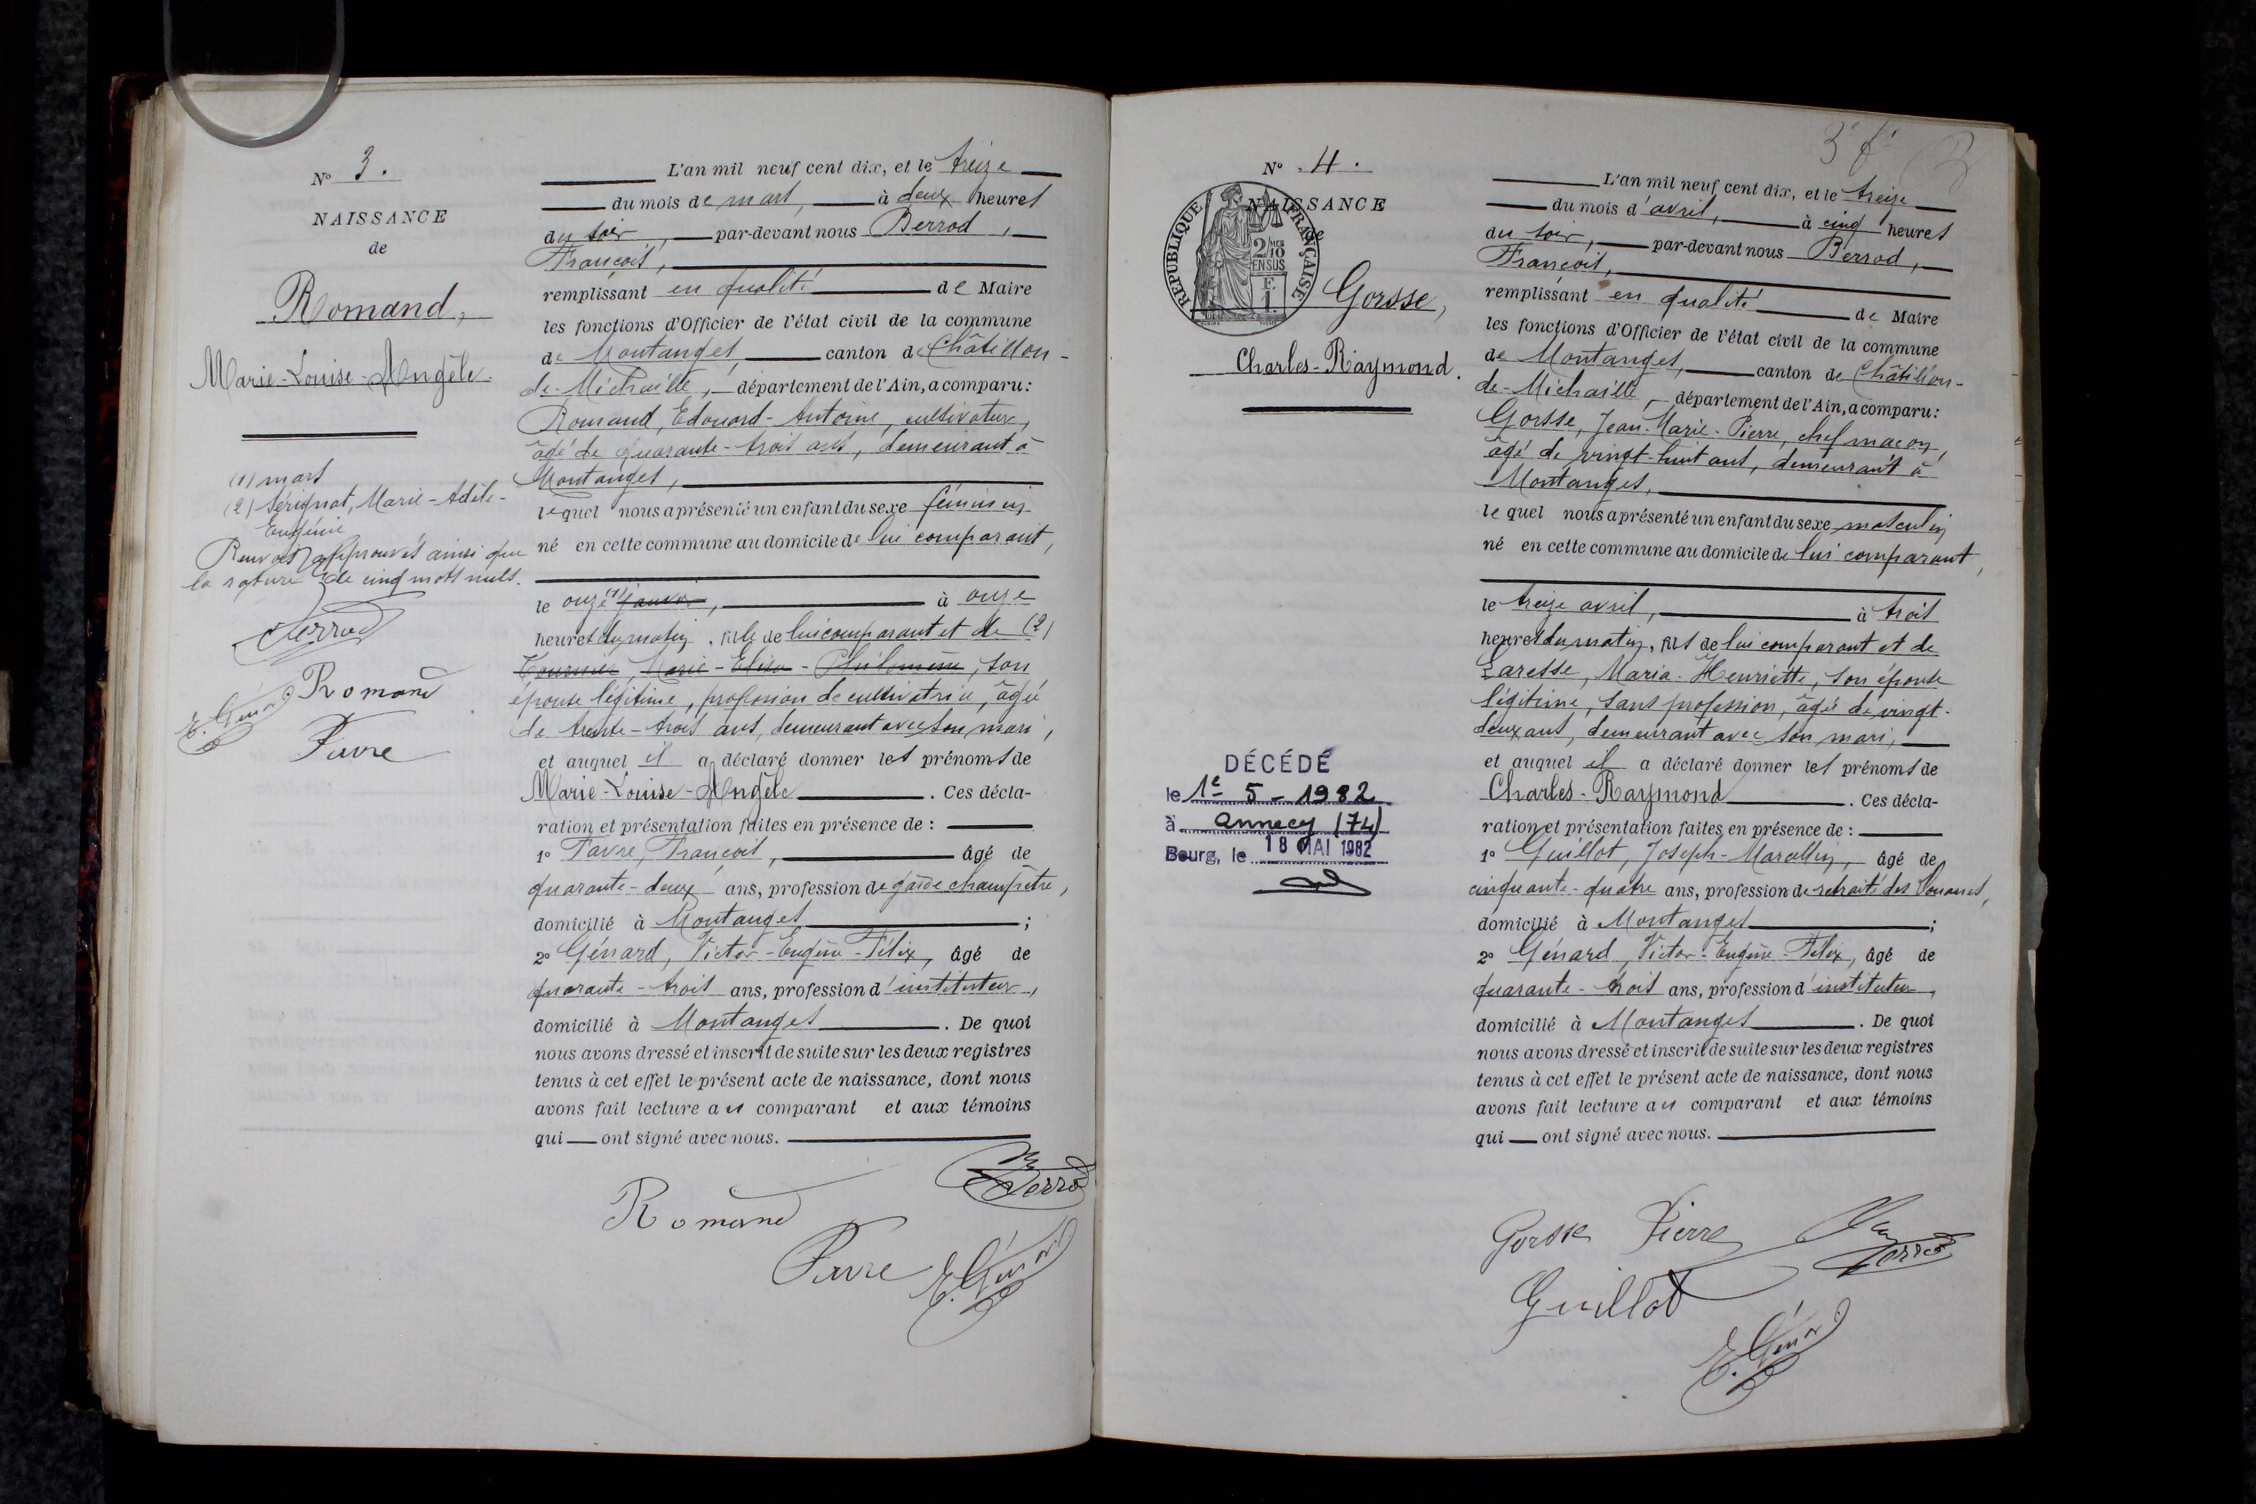 N° 3.
NAISSANCE
de
Romand,
Marie-Louise-Angèle.
(1) mars
(2) Sérignat, Marie-Adèle-
Eugénie
Renvois approuvés ainsi que
la rature de cinq mots nuls.
Berrod
Romand
E. Génard
Favre
L'an mil neuf cent dix, et le treize
du mois de mars, à deux heures
du soir, par-devant nous Berrod,
François,
remplissant en qualité de Maire
les fonctions d'Officier de l'état civil de la commune
de Montanges canton de Châtillon-
de-Michaille, département de l'Ain, a comparu:
Romand, Edouard-Antoine, cultivateur,
âgé de quarante-trois ans, demeurant à
Montanges,
lequel nous a présenté un enfant du sexe féminin
né en cette commune au domicile de lui comparant,
le onze (1) janvier, à onze
heures du matin, fille de lui comparant et de (2)
Tournier, Marie-Elisa-Philomène, son
épouse légitime, profession de cultivatrice, âgée
de trente-trois ans, demeurant avec son mari,
et auquel il a déclaré donner les prénoms de
Marie-Louise-Angèle. Ces décla-
ration et présentation faites en présence de :
1° Favre, François, âgé de
quarante-deux ans, profession de garde champêtre,
domicilié à Montanges ;
2° Génard, Victor-Eugène-Félix, âgé de
quarante-trois ans, profession d'instituteur,
domicilié à Montanges. De quoi
nous avons dressé et inscrit de suite sur les deux registres
tenus à cet effet le présent acte de naissance, dont nous
avons fait lecture au comparant et aux témoins
qui ont signé avec nous.
Romand
Berrod
Favre
E. Génard
3e f
N° 4.
NAISSANCE
de
RÉPUBLIQUE FRANÇAISE
2/10 EN SUS
F.
1
Gorsse,
Charles-Raymond.
DÉCÉDÉ
le 1e 5-1982
à Annecy (74)
Bourg, le 18 MAI 1982
L'an mil neuf cent dix, et le treize
du mois d'avril, à cinq heures
du soir, par-devant nous Berrod,
François,
remplissant en qualité de Maire
les fonctions d'Officier de l'état civil de la commune
de Montanges, canton de Châtillon-
de-Michaille, département de l'Ain, a comparu:
Gorsse, Jean-Marie-Pierre, chef maçon,
âgé de vingt-huit ans, demeurant à
Montanges,
lequel nous a présenté un enfant du sexe masculin
né en cette commune au domicile de lui comparant,
le treize avril, à trois
heures du matin, fils de lui comparant et de
Laresse, Maria-Henriette, son épouse
légitime, sans profession, âgée de vingt-
deux ans, demeurant avec son mari,
et auquel il a déclaré donner les prénoms de
Charles-Raymond. Ces décla-
ration et présentation faites en présence de :
1° Guillot, Joseph-Marcellin, âgé de
cinquante-quatre ans, profession de retraité des Douanes,
domicilié à Montanges ;
2° Génard, Victor-Eugène-Félix, âgé de
quarante-trois ans, profession d'instituteur,
domicilié à Montanges. De quoi
nous avons dressé et inscrit de suite sur les deux registres
tenus à cet effet le présent acte de naissance, dont nous
avons fait lecture au comparant et aux témoins
qui ont signé avec nous.
Gorsse Pierre
Berrod
Guillot
E. Génard